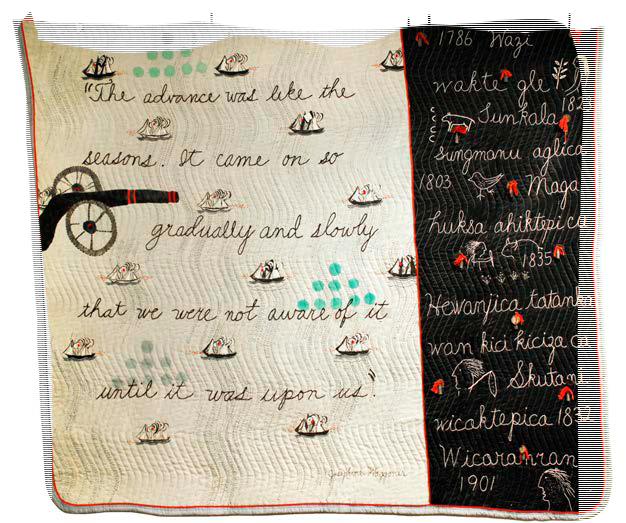 "The advance was like the
seasons. It came on so
gradually and slowly
that we were not aware of it
until it was upon us."
Josephine Waggoner
1786 Wazi
wakte gle
182
Sunkala
sungmanu aglica
1803 Maga
huksa ahiktepi ca
1835
Hewanjica tatanka
wan kici kiciza ca
Skutani
wicaktepica 183
Wicaranran
1901